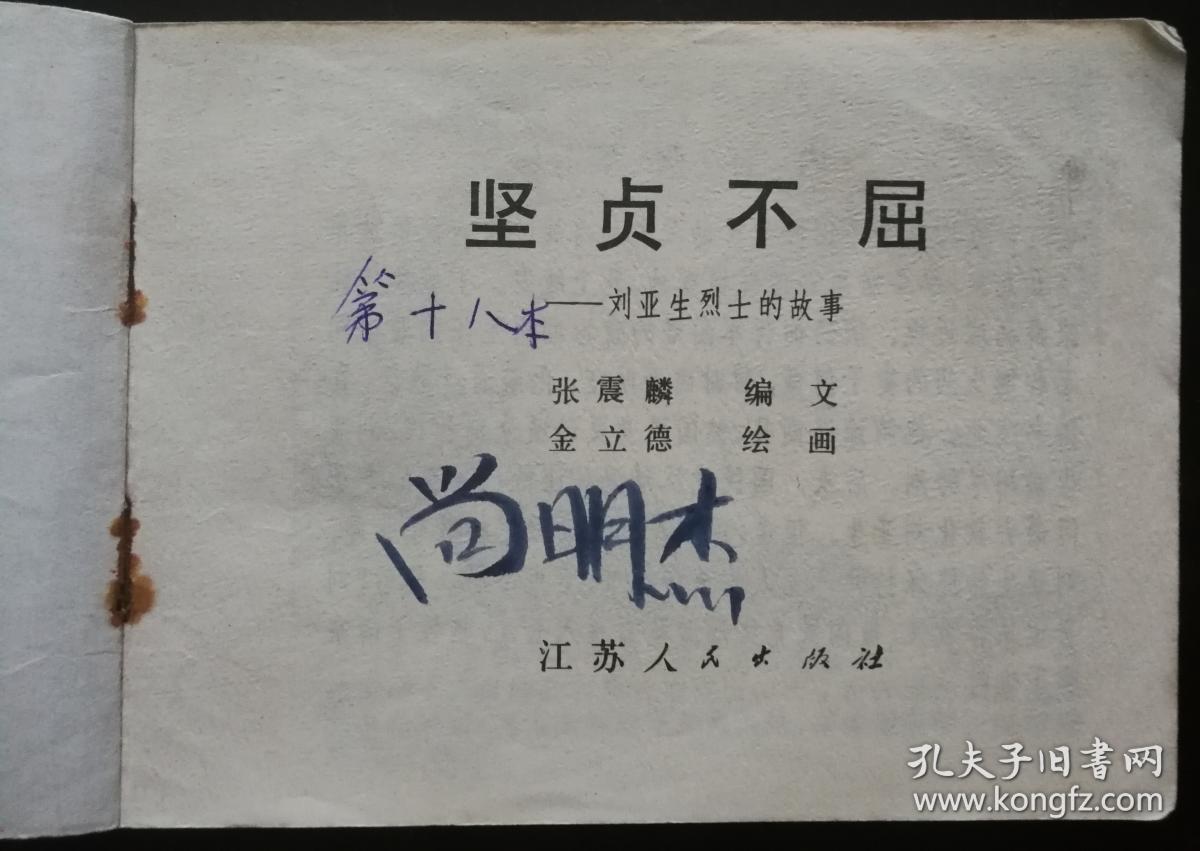 坚贞不屈
第十八本
——刘亚生烈士的故事
张震麟 编文
金立德 绘画
尚明杰
江苏人民出版社
孔夫子旧书网
www.kongfz.com